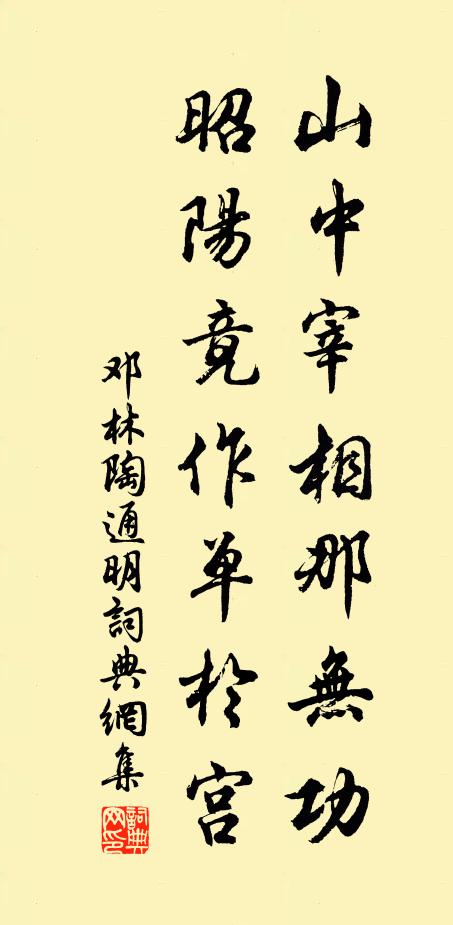 山中宰相那無功
昭陽竟作单於宫
邓林陶通明詞典網集
詞典网印